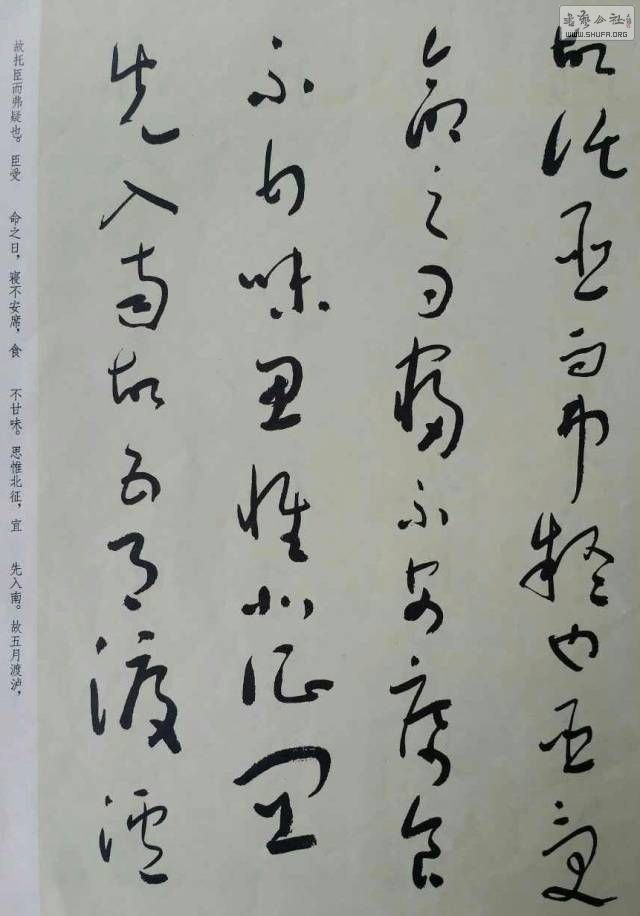 故托臣而弗疑也臣受
命之日寝不安席食
不甘味思惟北征宜
先入南故五月渡泸
故托臣而弗疑也。臣受 命之日，寝不安席，食 不甘味。思惟北征，宜 先入南。故五月渡泸，
书艺公社
WWW.SHUFA.ORG